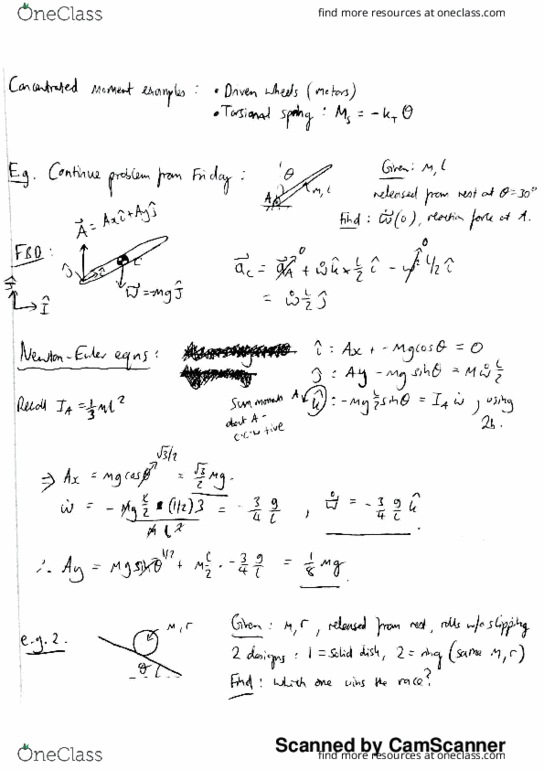 OneClass
find more resources at oneclass.com
Concentrated moment examples : • Driven wheels (motors)
• Torsional spring : Ms = -kT θ
E.g. Continue problem from Friday :
θ
A
m, l
Given : m, l
released from rest at θ=30°
Find : ω̇(0), reaction force at A.
A⃗ = Ax î + Ay ĵ
FBD :
ĵ
î
c
W⃗ = -mg Ĵ
Î
a⃗c = a⃗A⁰ + ω̇ k̂ × l/2 î - ω²⁰ l/2 î
= ω̇ l/2 ĵ
Newton-Euler eqns :
î : Ax + -mg cosθ = 0
ĵ : Ay - mg sinθ = m ω̇ l/2
Recall IA = 1/3 ml²
Sum moments about A -
ccw +ive
A k̂ : -mg l/2 sinθ = IA ω̇ , using 2b.
⇒ Ax = mg cosθ √3/2 = √3/2 mg.
ω̇ = - mg l/2 • (1/2) 3 / m l² = - 3/4 g/l , ω̇⃗ = - 3/4 g/l k̂
∴ Ay = mg sinθ 1/2 + m l/2 · - 3/4 g/l = 1/8 mg
e.g. 2.
m, r
θ
Given : m, r , released from rest, rolls w/o slipping
2 designs : 1 = solid dish, 2 = ring (same m, r)
Find : which one wins the race?
Scanned by CamScanner
OneClass
find more resources at oneclass.com